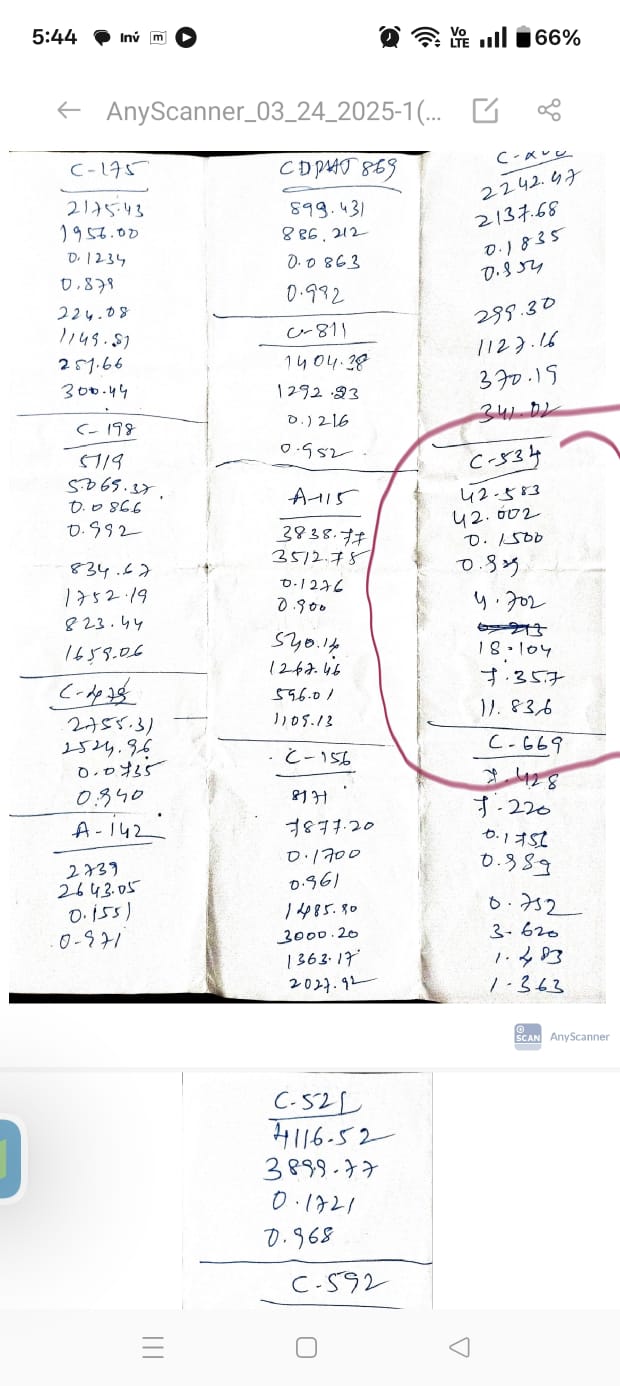 5:44
Inv
m
Vo
LTE
66%
AnyScanner_03_24_2025-1(...
C-175
2175.43
1956.00
0.1234
0.879
224.08
1149.51
257.66
300.44
C-198
5719
5069.37
0.0866
0.992
834.67
1752.19
823.44
1659.06
2755.31
2524.96
0.0735
0.940
A-142
2739
2643.05
0.1551
0.971
869
899.431
886.212
0.0863
0.992
C-811
1404.38
1292.93
0.1216
0.952
A-115
3838.77
3512.78
0.1276
0.900
540.14
1267.46
596.01
1109.13
C-156
8171
7877.20
0.1700
0.961
1485.80
3000.20
1363.17
2027.92
2242.47
2137.68
0.1835
0.954
299.30
1127.16
370.19
341.02
C-534
42.583
42.002
0.1500
4.702
18.104
7.357
11.836
C-669
7.428
7.220
0.989
0.752
3.620
1.483
1.363
SCAN
AnyScanner
C-521
4116.52
3899.77
0.1721
0.968
C-592